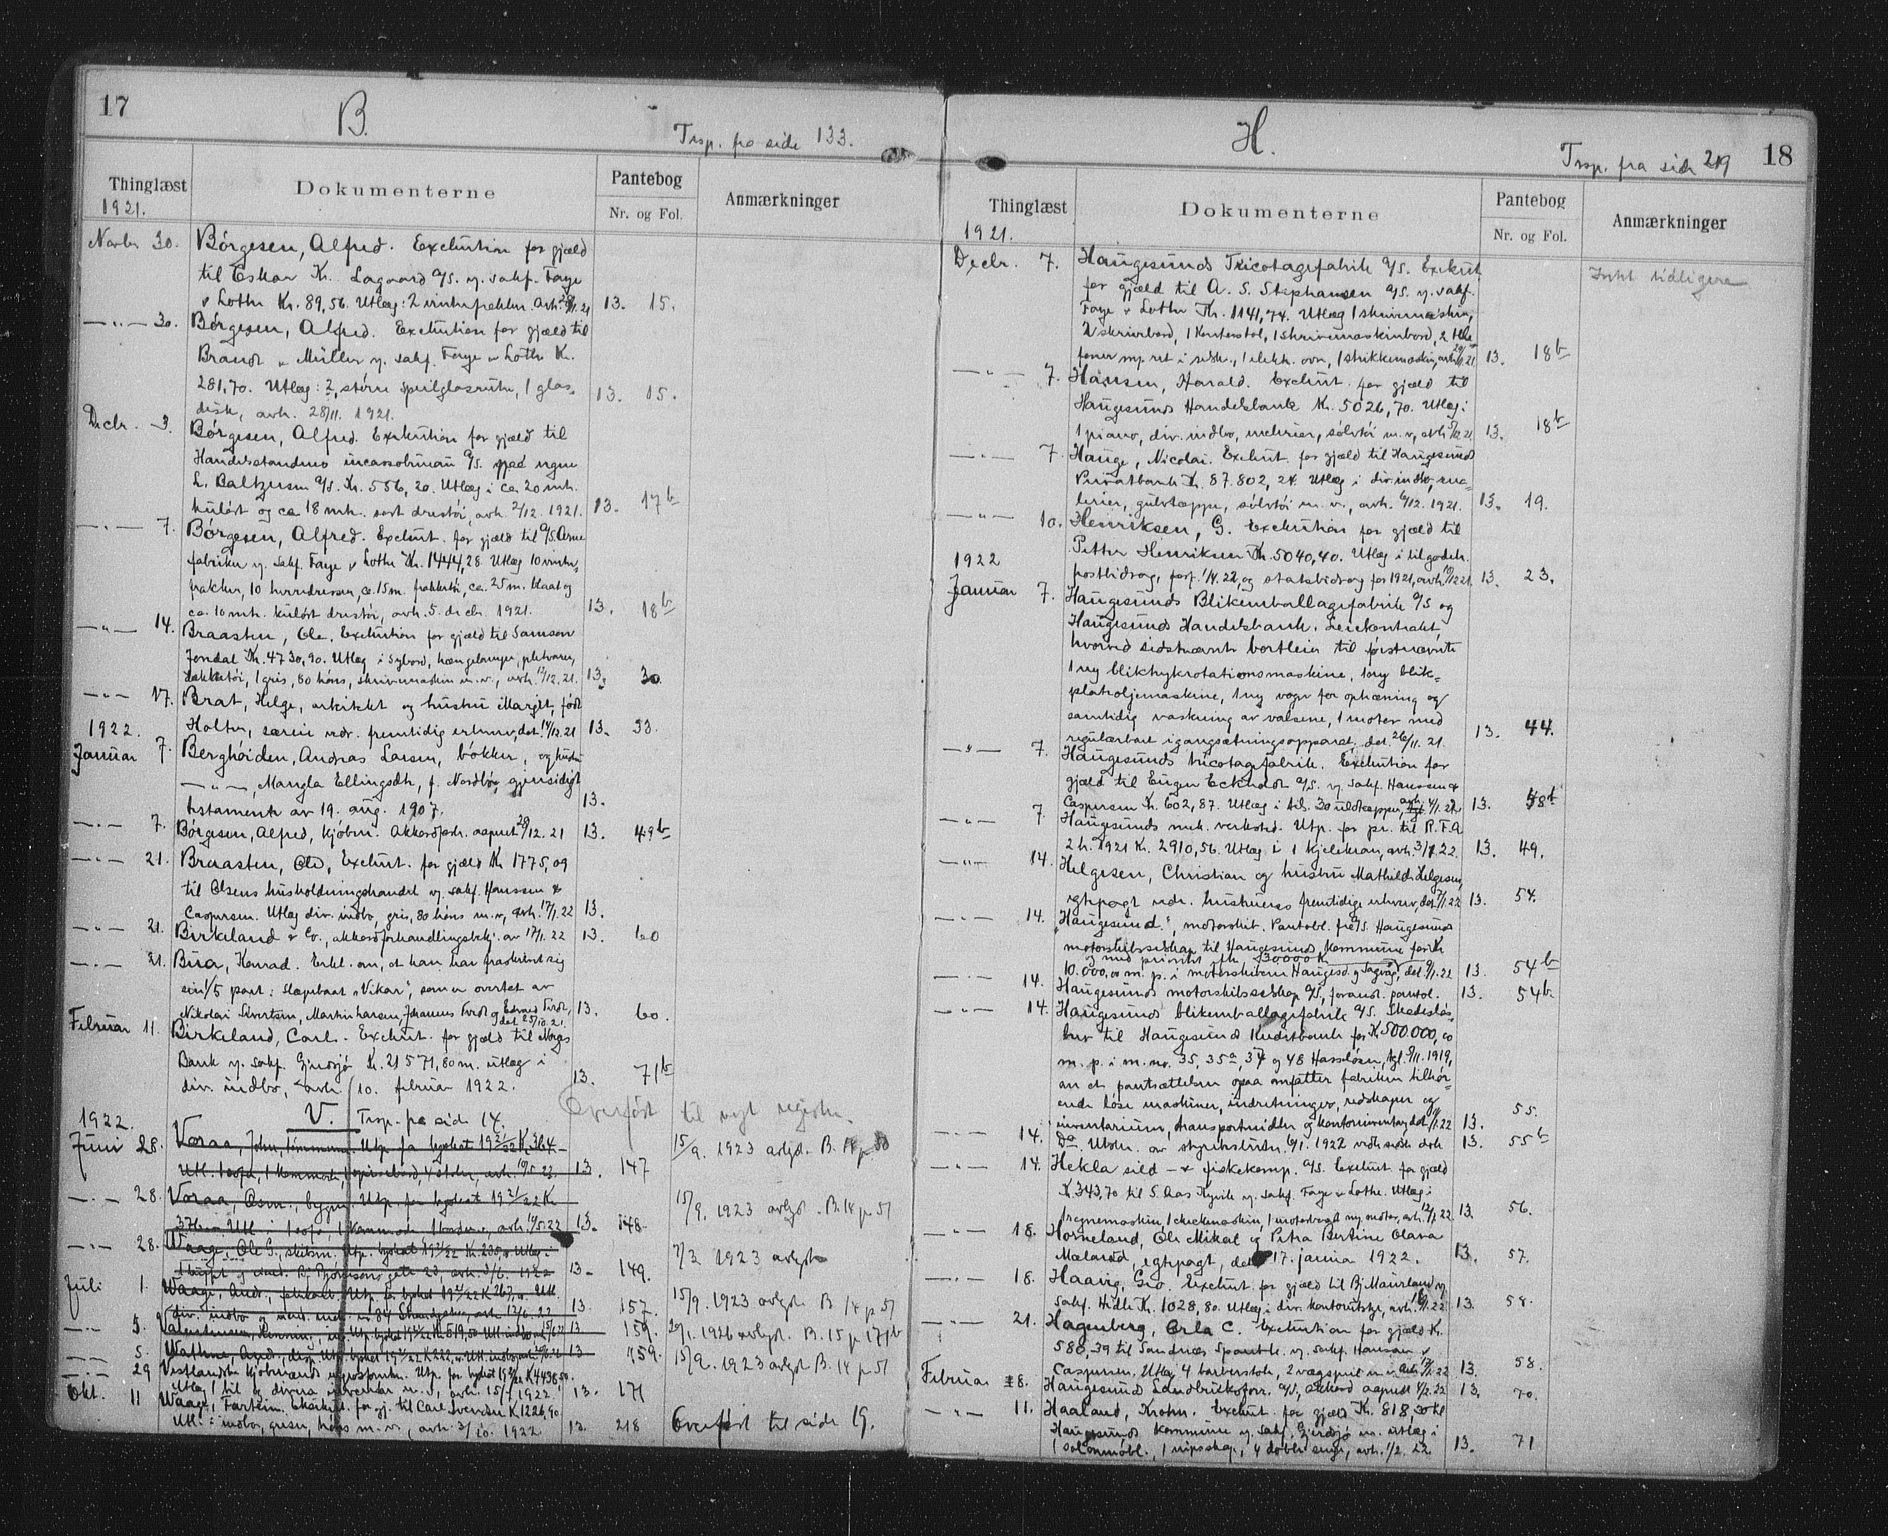 17
B.
Trsp. fra side 133.
Thinglæst
Dokumenterne
Pantebog
Nr. og Fol.
Anmærkninger
1921.
Novbr 30. Börgesen, Alfred. Exekution for gjæld
til Eskar Kr. Lagaard A/S. v. sakf. Faye
& Lothe Kr. 89,56. Utlæg: 2 vinterfrakker. avh. 28/11. 21 13. 15.
— " — 30. Börgesen, Alfred. Exekution for gjæld til
Brandt & Müller v. sakf. Faye & Lothe Kr.
281,70. Utlæg: 2 större speilglasrute, 1 glas-
disk, avh. 28/11. 1921. 13. 15.
Decbr. 3. Börgesen, Alfred. Exekution for gjæld til
Handelsstandens incassobureau A/S. egne
L. Baltzersen A/S. Kr. 556,20. Utlæg i ca 20 mtr.
kulört og ca 18 mtr. sort drestöi, avh. 2/12. 1921. 13. 17b
— " — 7. Börgesen, Alfred. Exekut. for gjæld til A/S. Arne
fabrikker v. sakf. Faye & Lothe Kr. 1444,28 Utlæg 10 vinter-
frakker, 10 herredresser, ca. 15 m. frakketöi, ca. 25 m. blaat og
ca. 10 mtr. kulört drestöi, avh. 5. decbr. 1921. 13. 18b
— " — 14. Braasten, Ole. Exekution for gjæld til Samson
Jondal Kr. 4730,90. Utlæg i sybord, hængelamper, pletvarer,
dækketöi, 1 gris, 80 höns, skrivemaskin m.v., avh. 12/12. 21. 13. 30
— " — 17. Brat, Helge, arkitekt og hustru Margit, född
Holter, særeie vedr. fremtidig erhverv, dat. 14/12. 21 13. 33.
1922.
Januar 7. Berghöiden, Andreas Larsen, bökker, og hustru
— " —, Mangla Ellingsdtr, f. Nordbö, gjensidigt
testamente av 19. aug. 1907. 13.
— " — 7. Börgesen, Alfred, kjöbm. Akkordforh. aapnet 28/12. 21 13. 49b
— " — 21. Braasten, Ole, Exekut. for gjæld Kr. 1775,09
til Olsens husholdningshandel v. sakf. Hanssen &
Caspersen. Utlæg div. indbo, gris, 80 höns m.v, avh. 17/1. 22 13.
— " — 21. Birkeland & Co., akkordforhandlingsbekj. av 17/1. 22 13. 60
— " — 21. Bua, Konrad. Erkl. om, at han har fraskrevet sig
sin 1/5 part i Slæpebaat "Vikar", som er overtat av
Nikolai Sivertsen, Martin Larsen, Johannes Tvedt og Edvard Tvedt, dat 25/10. 21. 13. 60.
Februar 11. Birkeland, Carl. Exekut. for gjæld til Norges
Bank v. sakf. Gjerdsjö Kr. 21571,80 m. utlæg i
div. indbo, avh. 10. februar 1922. 13. 71b
V. Trsp. fra side 14.
Overfört til nyt register.
1922.
Juni 28. Voraa, John, tömmerm. Utp. for byskat 1921/22 K. 364 –
Utl. 1 sofa, 1 kommode, 1 spisebord, 4 stoler, avh. 19/5 22. 13. 147 15/9. 1923 avlyst. B. 14 p. 50
— " — 28. Voraa, Asm., byggm. Utp. for byskat 1921/22 K
Utl. i 1 sofa, 1 kommode 1 bord m.v, avh. 19/5 22 13. 148. 15/9. 1923 avlyst. B. 14 p. 51
— " — 28. Waage, Ole G., skibsm. Utp. byskat 1921/22 K. 235,- Utlæg i
1 buffet og eiend. Bj. Björnsons gate 23, avh. 3/6. 1922 13. 149. 7/3 1923 avlyst
Juli 1. Waage, Andr., Utp. for byskat 1921/22 K 267,- Utl.
div. indbo og eiend. matr. no 84 Strandgaten, avh. 13/6. 22 13. 157. 15/9. 1923 avlyst B. 14 p. 51
— " — 5. Utp. byskat 1921/22 K 519,50 Utl. indbo avh. 15/6 22 13 159. 29/1. 1926 avlyst. B. 15 p 171b
— " — 5. Wathne, And., disp. Utp. byskat 1921/22 K 222,- Utl. indbo 13 159. 15/9. 1923 avlyst B. 14 p. 51
— " — 29 Vestlandske kjöbmænds Utp. for byskat 1921/22 K 4436 50.
Utlæg 1 bil & diverse inventar m.v, avh. 15/7 1922. 13. 171
Okt. 11 Waage, Torstein. Exekut. for gj. til Carl Iversen K 1226,90
Utl. i indbo, griser, höns m.v., avh. 3/10. 1922. 13. 218 Overfört til side 19.
18
H.
Trsp. fra side 219
Thinglæst
Dokumenterne
Pantebog
Nr. og Fol.
Anmærkninger
1921.
Decbr. 7. Haugesunds Tricotagefabrik A/S. Exekut.
for gjæld til A. S. Stephansen A/S. v. sakf.
Faye & Lothe Kr. 1141,74. Utlæg 1 skrivemaskin,
2 skrivebord, 1 kontorstol, 1 skrivemaskinbord, 2 tele
foner m. ret i selsk., 1 elektr. ovn, 1 strikkemaskin, avh. 29/11. 21 13. 18b
Intet tidligere
— " — 7. Hansen, Harald. Exekut. for gjæld til
Haugesunds Handelsbank Kr. 5026,70. Utlæg i
1 piano, div. indbo, malerier, sölvtöi m.v, avh. 5/12. 21 13. 18b
— " — 7. Hauge, Nicolai. Exekut. for gjæld til Haugesunds
Privatbank Kr. 87.802,24. Utlæg i div. indbo, ma-
lerier, gulvtæppe, sölvtöi m.v., avh. 6/12. 1921. 13. 19.
— " — 10. Henriksen, G. Exekution for gjæld til
Petter Henriksen Kr. 5040,40. Utlæg i tilgodeh.
postbidrag, forf. 1/4. 22, og statsbidrag for 1921, avh. 10/12 21. 13. 23.
1922
Januar 7. Haugesunds Blikemballagefabrik A/S og
Haugesunds Handelsbank. Leiekontrakt,
hvorved sidstnævnte bortleier til förstnævnte
1 ny bliktrykrotationsmaskine, 1 ny blik-
plateoljemaskine, 1 ny vogn for ophæning og
samtidig vaskning av valsene, 1 motor med
regulærbart igangsætningsapparat, dat. 26/11. 21. 13. 44.
— " — 7. Haugesunds tricotagefabrik. Exekution for
gjæld til Eugen Eckhardt A/S. v. sakf. Hanssen &
Caspersen Kr. 602,87. Utlæg i tils. 30 uldtæpper, avh. 4/1. 22 13. 48b
— " — 7. Haugesunds mek. verksted. Utp. for pr. til R.F.A
2 h. 1921 Kr. 2910,56. Utlæg i 1 kjelekran, avh. 3/1. 22. 13. 49.
— " — 14. Helgesen, Christian og hustru Mathilde Helgesen,
egtepagt vedr. hustruens fremtidige erhverv, dat. 7/1. 22 13. 54.
— " — 14. "Haugesund", motorskib. Pantobl. fra A/S. Haugesunds
motorskibsselskap til Haugesunds kommune for Kr
og med prioritet efter 130000 K
10.000,00 m. p. i motorskibene Haugesd. og Sagvåg, dat. 9/1. 22 13. 54b
— " — 14. Haugesunds motorskibsselskap A/S, forandr. pantobl. 13. 54b
— " — 14. Haugesunds blikemballagefabrik A/S. Skadeslös-
brev til Haugesunds Kreditbank for K 500.000,00
m. p. i m. no. 35, 35a, 37 og 48 Hasselöen, tgl. 9/11. 1919,
an at pantsættelsen ogsaa omfatter fabriken tilhör-
ende löse maskiner, indretninger, redskaper og
inventarium, transportmidler og kontorinventar, dat. 9/1. 22 13. 55.
— " — 14. Do. Utskr. av styrebeslutn. 6/1. 1922 vedr. sidste dok 13. 55b
— " — 14. Hekla sild – & fiskekomp. A/S. Exekut for gjæld
K. 343,70 til S. Aas Kyvik v. sakf. Faye & Lothe. Utlæg i
1 regnemaskin, 1 checkmaskin, 1 motorbaat m. motor, avh. 12/1. 22 13. 56.
— " — 18. Horneland, Ole Mikal og Petra Bertine Olava
Mæland, egtepagt, dat 17. januar 1922. 13. 57.
— " — 18. Haavig, Geo. Exekut. for gjæld til Bj. Mæland v
sakf. Hidle Kr. 1028,80. Utlæg i div. kontorutstyr, avh. 16/1. 22 13. 58.
— " — 21. Hagenberg, Orla C. Exekution for gjæld Kr.
588,39 til Sandnes Sparebk. v. sakf. Hanssen &
Caspersen, Utlæg 4 barberstole, 2 vægspeil m.v, avh. 19/1. 22 13. 58.
Februar 8. Haugesunds Landbruksforr. A/S, akkord aapnet 4/2. 22 13. 70.
— " — 11. Haaland, Krohn. Exekut. for gjæld Kr. 818,50 til
Haugesunds Kommune v. sakf. Gjerdsjö m. utlæg i
1 salonmöbl., 1 nipsskap, 4 döble senge, avh. 1/2. 22 13. 71